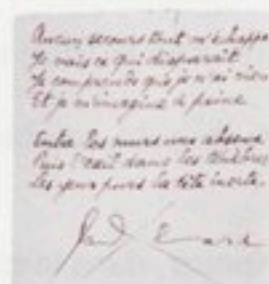 Aucun secours tout m'échappe
Je suis ce qui disparaît
Je comprends que je n'ai rien
Et je m'imagine à peine
Entre les murs une absence
Puis l'exil dans les ténèbres
Les yeux purs la tête inerte.
Paul Eluard